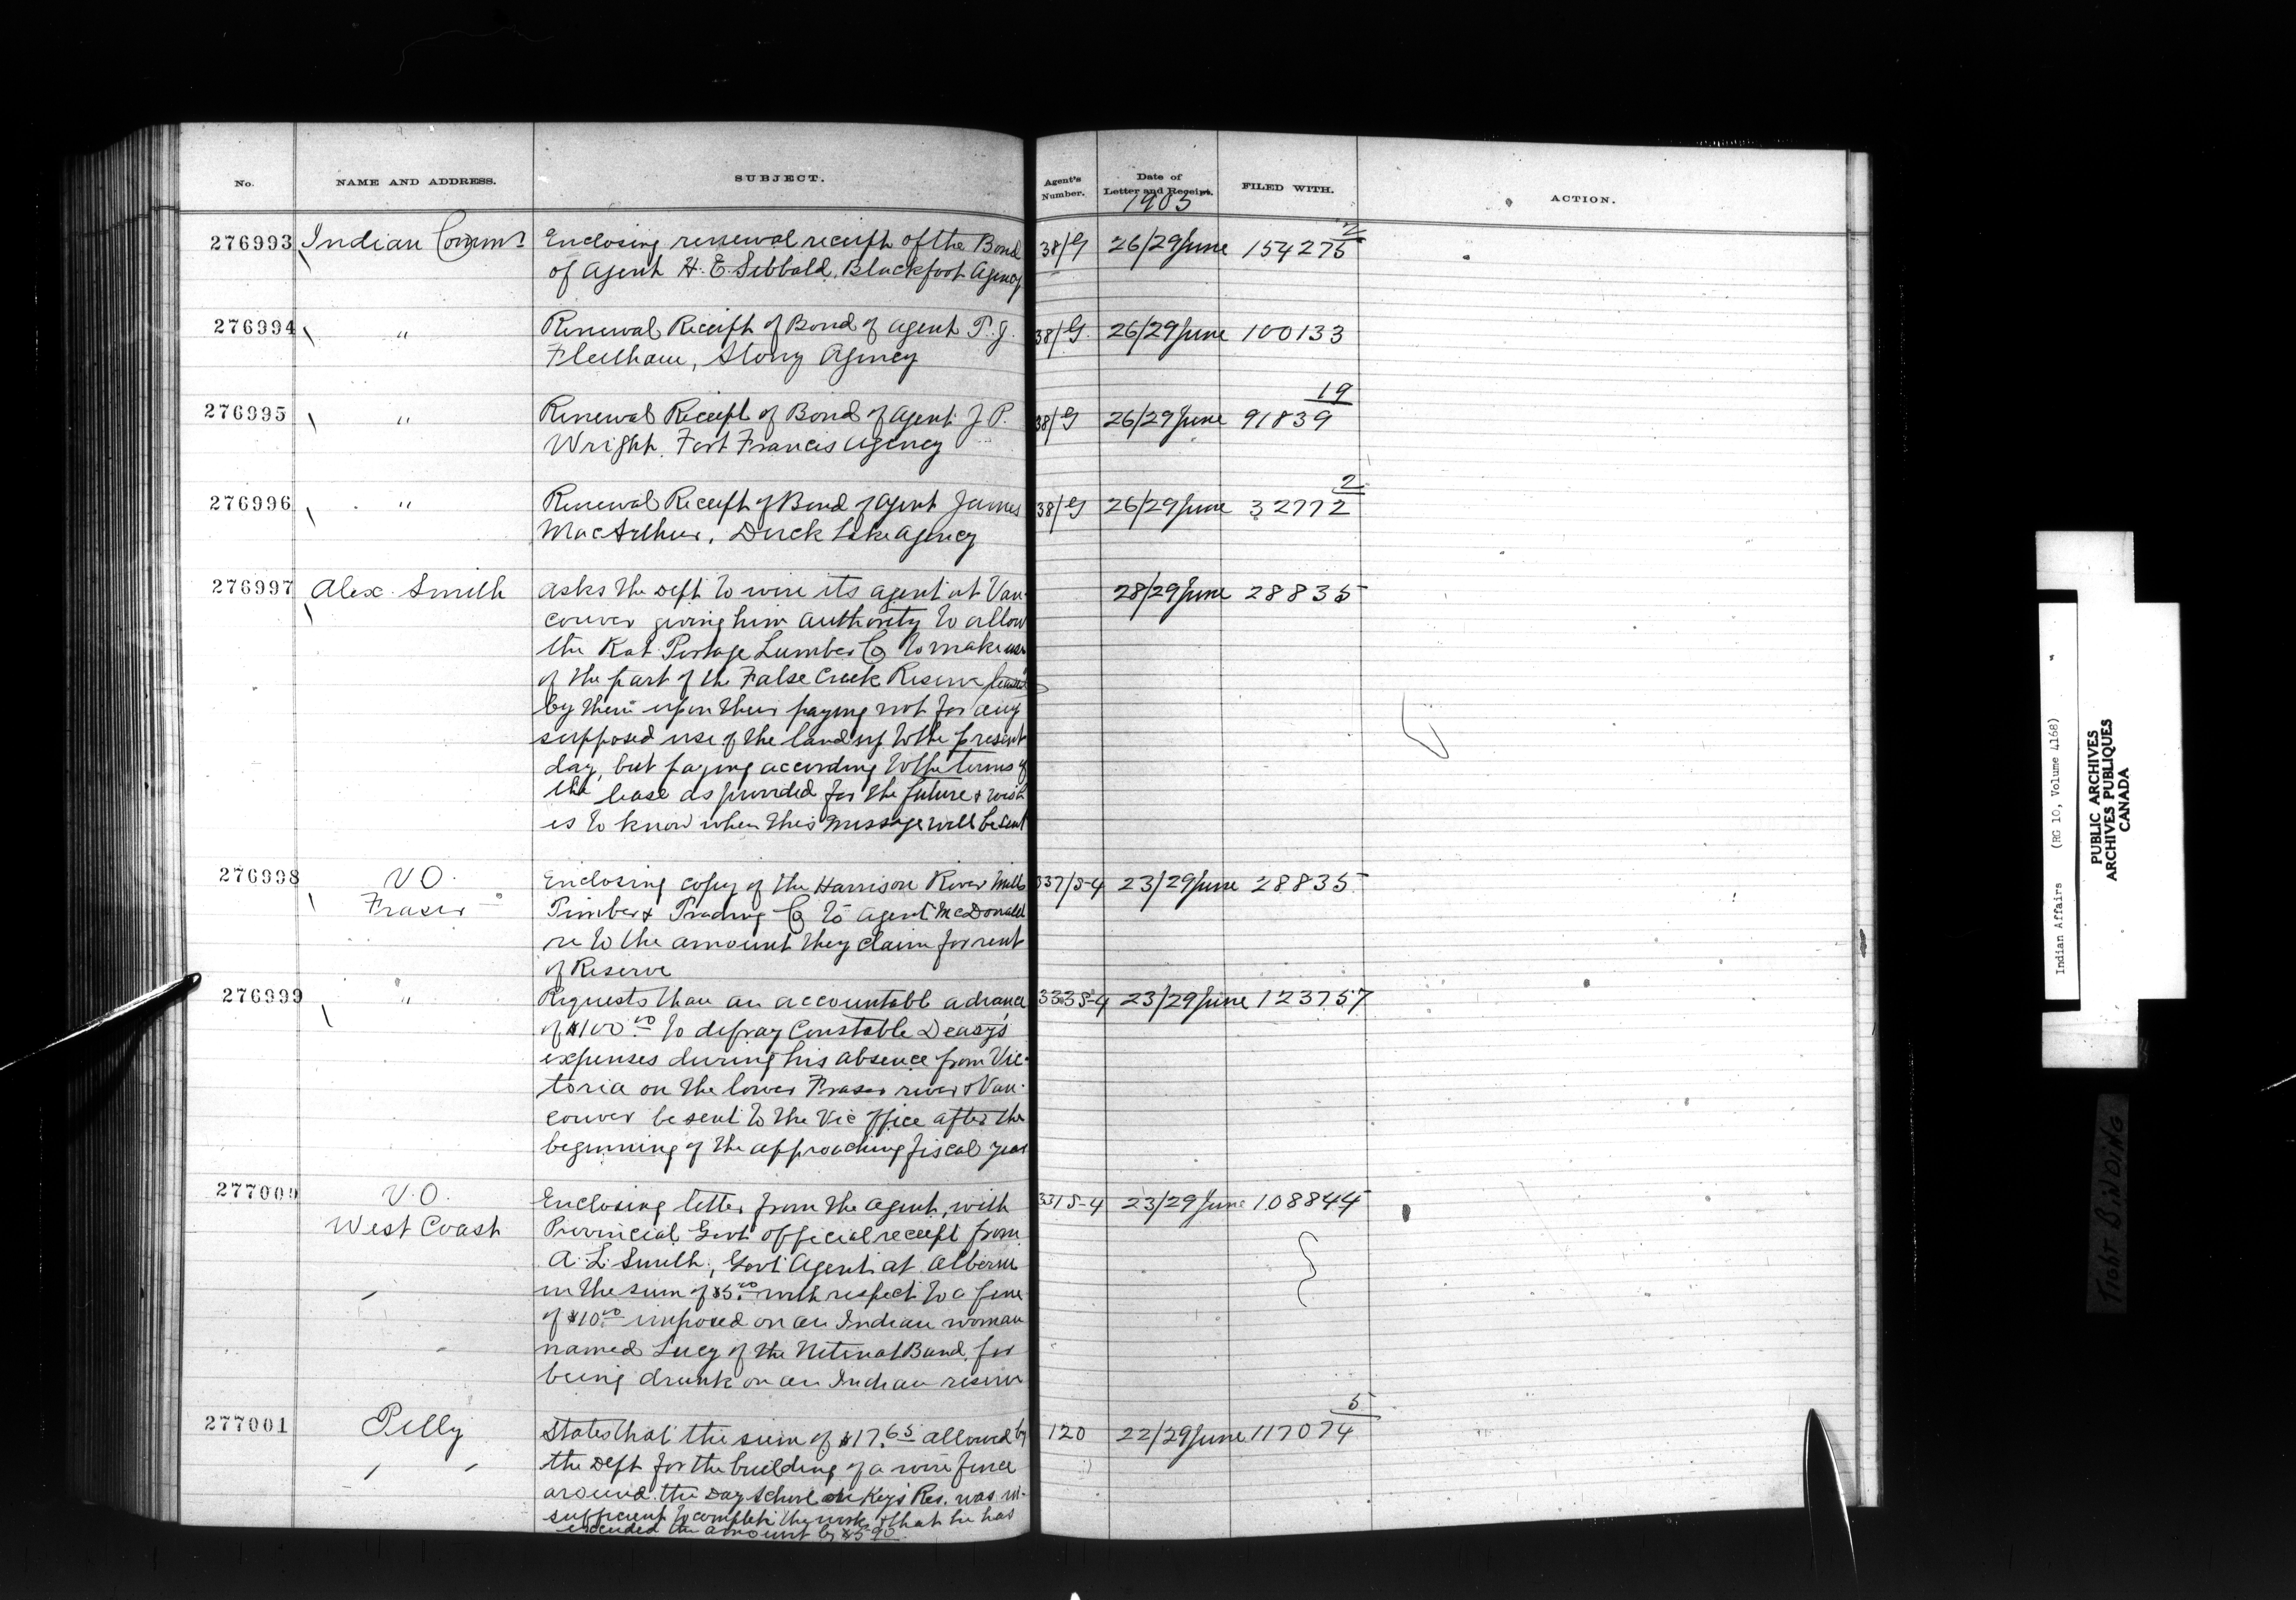 No. NAME AND ADDRESS. SUBJECT. Agent's Number. Date of Letter and Receipt. FILED WITH. ACTION.
1903
276993 Indian Commr Enclosing renewal receipt of the Bond 38/G 26/29 June 154275 2
of Agent H. E. Sibbald, Blackfoot Agency
276994 " Renewal Receipt of Bond of Agent P. J. 38/G 26/29 June 100133
Fleetham, Stony Agency
19
276995 " Renewal Receipt of Bond of Agent J. P. 38/G 26/29 June 91839
Wright, Fort Francis Agency
2
276996 " Renewal Receipt of Bond of Agent James 38/G 26/29 June 32772
MacArthur, Duck Lake Agency
276997 Alex. Smith Asks the Dept to wire its agent at Van- 28/29 June 28835
couver giving him authority to allow
the Rat Portage Lumber Co to make use
of the part of the False Creek Reserve leased
by them upon their paying not for any
supposed use of the land up to the present
day, but paying according to the terms of
the lease as provided for the future & wish
es to know when this message will be sent
276998 V.O. Enclosing copy of the Harrison River Mills 337/S-4 23/29 June 28835
Fraser Timber & Trading Co to Agent McDonald
re to the amount they claim for rent
of Reserve
276999 " Requests than an accountable advance 333S-4 23/29 June 123757
of $100.00 to defray Constable Deasy's
expenses during his absence from Vic-
toria on the lower Fraser river & Van-
couver be sent to the Vic Office after the
beginning of the approaching fiscal year
277000 V.O. Enclosing letter from the Agent, with 331S-4 23/29 June 108844
West Coast Provincial Govt official receipt from
A. L. Smith, Govt Agent at Alberni
in the sum of $5.00 with respect to a fine
of $10.00 imposed on an Indian woman
named Lucy of the Nitinat Band, for
being drunk on an Indian reserve
5
277001 Pelly States that the sum of $17.65 allowed by 120 22/29 June 117074
the Dept for the building of a wire fence
around the Day School on Keys Res. was in-
sufficient to complete the work, & that he has
exceeded the amount by $5.90
Indian Affairs (RG 10, Volume 4168)
PUBLIC ARCHIVES
ARCHIVES PUBLIQUES
CANADA
TIGHT BINDING